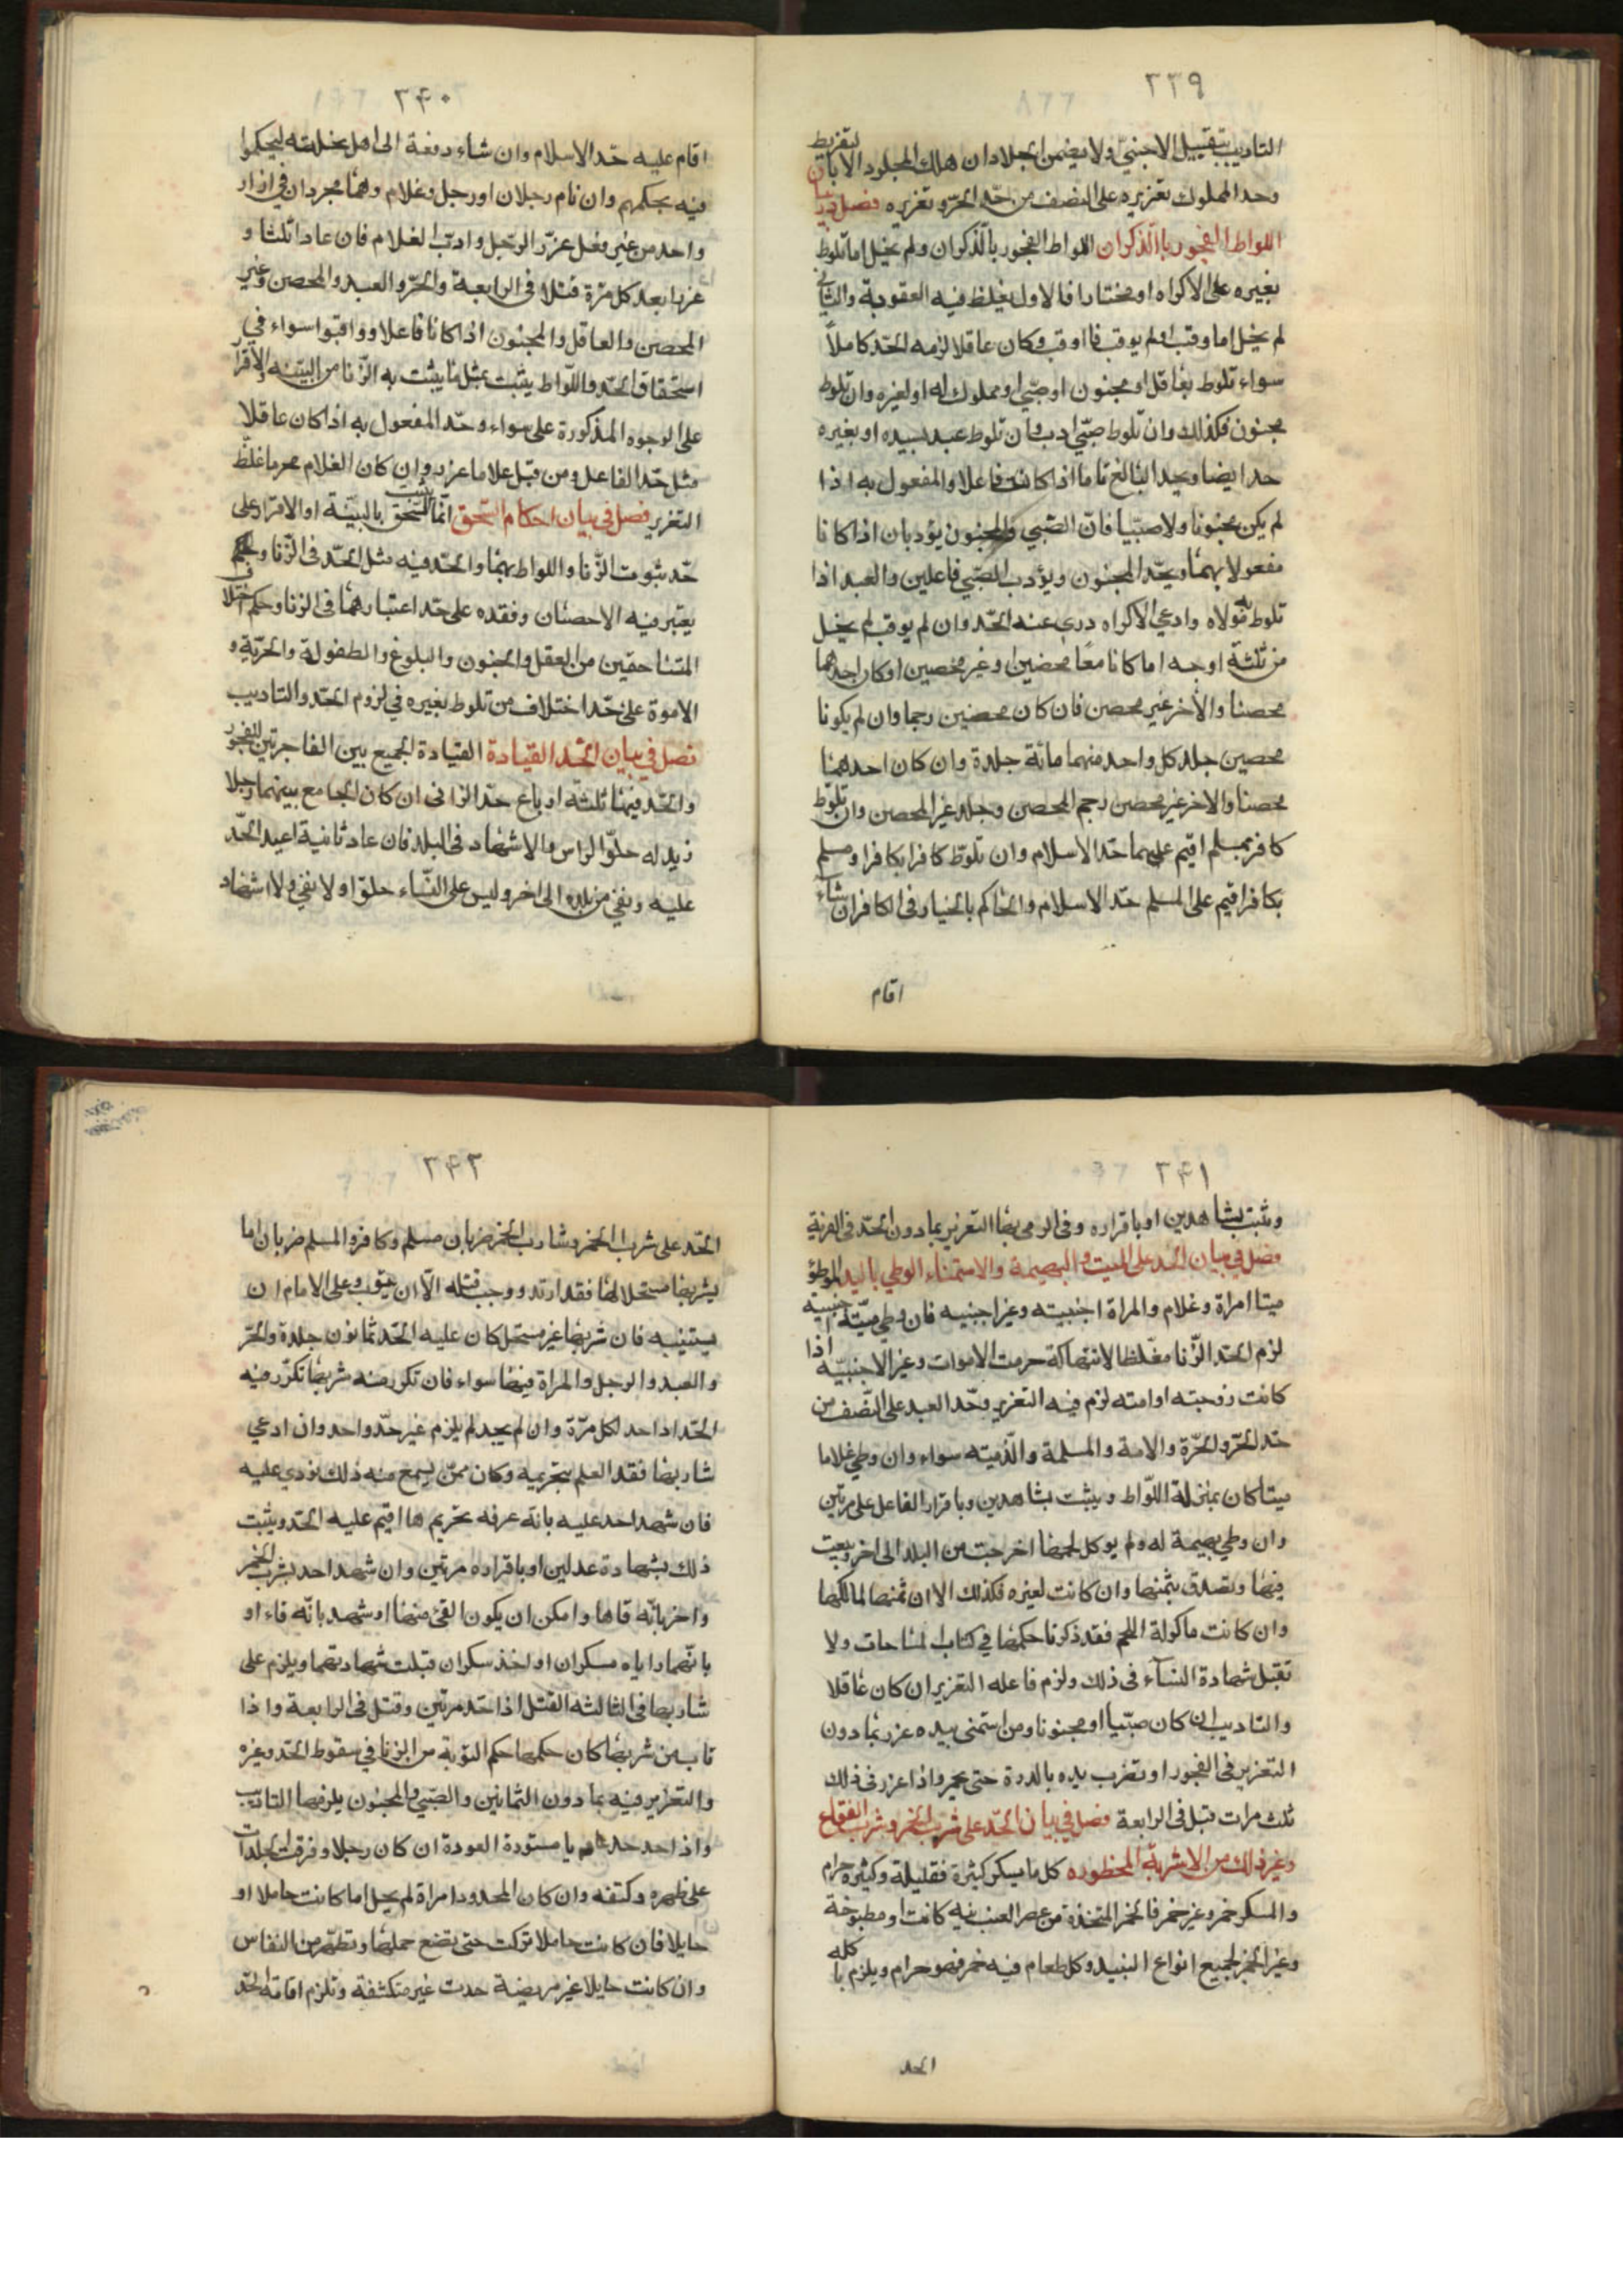 ٢٣٩
التاديب بتقبيل الاجنبي ولا يضمن الجلاد ان هلك المجلود الا بان لتفريط
وحد المملوك تعزيره على النصف من حد الحر وتعزيره فصل در بيا
اللواط الفجور باالذكران اللواط الفجور بالذكران ولم يخل اما تلوط
بغيره على الاكراه او مختارا فالاول يغلظ فيه العقوبة والثاني
لم يخل اما وقب او لم يوقب فان اوقب وكان عاقلا لزمه الحد كاملاً
سواء تلوط بعاقل او مجنون او صبي او مملوك له او لغيره وان تلوط
مجنون فكذلك وان تلوط صبي ادب وان تلوط عبد بسيده او بغيره
حد ايضا ويحد البالغ تاما اذا كانت فاعلا والمفعول به اذا
لم يكن مجنونا ولا صبيا فان الصبي والمجنون يؤدبان اذا كانا
مفعولا بهما ويحد المجنون ويؤدب الصبي فاعلين والعبد اذا
تلوط به مولاه وادعى الاكراه درى عنه الحد وان لم يوقب لم يخل
من ثلثة اوجه اما كانا معا محصنين او غير محصنين او كان احدهما
محصنا والاخر غير محصن فان كان محصنين رجما وان لم يكونا
محصين جلد كل واحد منهما مائة جلدة وان كان احدهما
محصنا والاخر غير محصن رجم المحصن وجلد غير المحصن وان تلوط
كافر بمسلم اقيم عليهما حد الاسلام وان تلوط كافرا بكافرا ومسلم
بكافر اقيم على المسلم حد الاسلام والحاكم بالخيار فى الكافر ان شاء
اقام
٢٤٠
اقام عليه حد الاسلام وان شاء دفعة الى اهل نحلته ليحكموا
فيه بحكمهم وان نام رجلان او رجل وغلام وهما مجردان في ازار
واحد من غير فعل عزر الرجل وادب الغلام فان عادا ثلثا و
عزرا بعد كل مرة قتلا فى الرابعة والحر والعبد والمحصن وغير
المحصن والعاقل والمجنون اذا كانا فاعلا وواقبوا سواء في
استحقاق الحد واللواط يثبت بمثل ما يثبت به الزنا من البينه والاقرا
على الوجوه المذكورة على سواء وحد المفعول به اذا كان عاقلا
مثل حد الفاعل ومن قبل غلاما عزر وان كان الغلام محرما غلظ
التعزير فصل في بيان احكام السحق انما يثبت السحق بالبينة او الاقرار على
حد ثبوت الزنا واللواط بهما والحد فيه مثل الحد فى الزنا و
يعتبر فيه الاحصان وفقده على حد اعتبارهما فى الزنا وحكم اختلاف
المتساحقين من العقل والجنون والبلوغ والطفولة والحرية و
الاموة على حد اختلاف من تلوط بغيره في لزوم الحد والتاديب
فصل في بيان الحد القيادة القيادة الجميع بين الفاجرتين للفجور
والحد فيها ثلثة ارباع حد الزانى ان كان الجامع بينهما رجلا
زيد له حلق الراس والاشهاد فى البلد فان عاد ثانية اعيد الحد
عليه ونفي من بلده الى اخر وليس على النساء حلق اولا نفي ولا اشهاد
٢٤١
ويثبت بشاهدين او باقراره وفى الرمى بها التعزير بما دون الحد فى الفرية
فصل في بيان الحد على الميت والبهيمة والاستمناء الوطي باليد الموطؤ
ميتا امراة وغلام والمراة اجنبيته وغير اجنبيه فان وطي ميتة اجنبيه
لزم الحد الزنا مغلظا لانتهاكه حرمت الاموات وغير الاجنبيه اذا
كانت زوجته او امته لزم فيه التعزير وحد العبد على النصف من
حد الحر والحرة والامة والمسلمة والذميته سواء وان وطي غلاما
ميتا كان بمنزلة اللواط ويثبت بشاهدين وباقرار الفاعل على مرتين
وان وطي بهيمة له ولم يوكل لحمها اخرجت من البلد الى اخر وبيعت
فيها وتصدق بثمنها وان كانت لغيره فكذلك الا ان ثمنها لمالكها
وان كانت ماكولة اللحم فقد ذكرنا حكمها في كتاب المباحات ولا
تقبل شهادة النساء فى ذلك ولزم فاعله التعزير ان كان عاقلا
والتاديب ان كان صبيا او مجنونا ومن استمنى بيده عزر بما دون
التعزير فى الفجور او تضرب يده بالدرة حتى يحمر واذا عزر فى ذلك
ثلث مرات قبل فى الرابعة فصل في بيان الحد على شرب الخمر وشرب الفقاع
وغير ذلك من الاشربة المحظوره كل ما يسكر كثيرة فقليلة وكثيره حرام
والمسكر خمر وغير خمر فالخمر المتخذة من عصر العنب نيه كانت او مطبوخة
وغير الخمر لجميع انواع النبيذ وكل طعام فيه خمر فهو حرام ويلزم باكله
الحد
٢٤٢
الحد على شرب الخمر وشارب الخمر ضربان مسلم وكافر والمسلم ضربان اما
يشربها مستحلا لها فقد ارتد ووجب قتله الا ان يتوب وعلى الامام ان
يستيبه فان شربها غير مستحل كان عليه الحد ثمانون جلدة والحر
والعبد والرجل والمراة فيها سواء فان تكرر منه شربها تكرر فيه
الحد اذا حد لكل مرة وان لم يحد لم يلزم غير حد واحد وان ادعى
شاربها فقد العلم بتحريمه وكان ممن يسمع منه ذلك نودي عليه
فان شهد احد عليه بانه عرفه تحريم ها اقيم عليه الحد ويثبت
ذلك بشهادة عدلين او باقراره مرتين وان شهد احد بشرب الخمر
واخر بانه قاها وامكن ان يكون القئ منها او شهد بانه قاء او
بانهما راياه مسكران او اخذ سكران قبلت شهادتهما ويلزم على
شاربها فى الثالثه القتل اذا حد مرتين وقتل فى الرابعة واذا
تاب من شربها كان حكمها حكم التوبة من الزنا في سقوط الحد وغيره
والتعزير فيه بما دون الثمانين والصبي والمجنون يلزمها التاديب
واذا حد حد عاريا مستورة العودة ان كان رجلا وفرقت الجلدات
على ظهره وكتفه وان كان المحدود امراة لم يحل اما كانت حاملا او
حايلا فان كانت حاملا تركت حتى يضع حملها وتطهر من النفاس
وان كانت حايلا غير مريضة حدت غير متكشفة وتلزم اقامة الحد